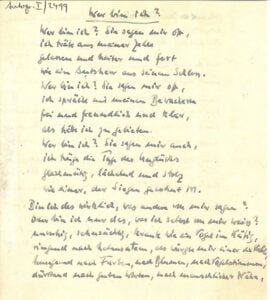 Wer bin ich?
Wer bin ich? Sie sagen mir oft,
ich träte aus meiner Zelle
gelassen und heiter und fest
wie ein Gutsherr aus seinem Schloss.
Wer bin ich? Sie sagen mir oft,
ich spräche mit meinen Bewachern
frei und freundlich und klar,
als hätte ich zu gebieten.
Wer bin ich? Sie sagen mir auch,
ich trüge die Tage des Unglücks
gleichmütig, lächelnd und stolz
wie einer, der Siegen gewohnt ist.
Bin ich das wirklich, was andere von mir sagen?
Oder bin ich nur das, was ich selbst von mir weiss?
unruhig, sehnsüchtig, krank wie ein Vogel im Käfig,
ringend nach Lebensatem, als würgte mir einer die Kehle,
hungernd nach Farben, nach Blumen, nach Vogelstimmen,
dürstend nach guten Worten, nach menschlicher Nähe,